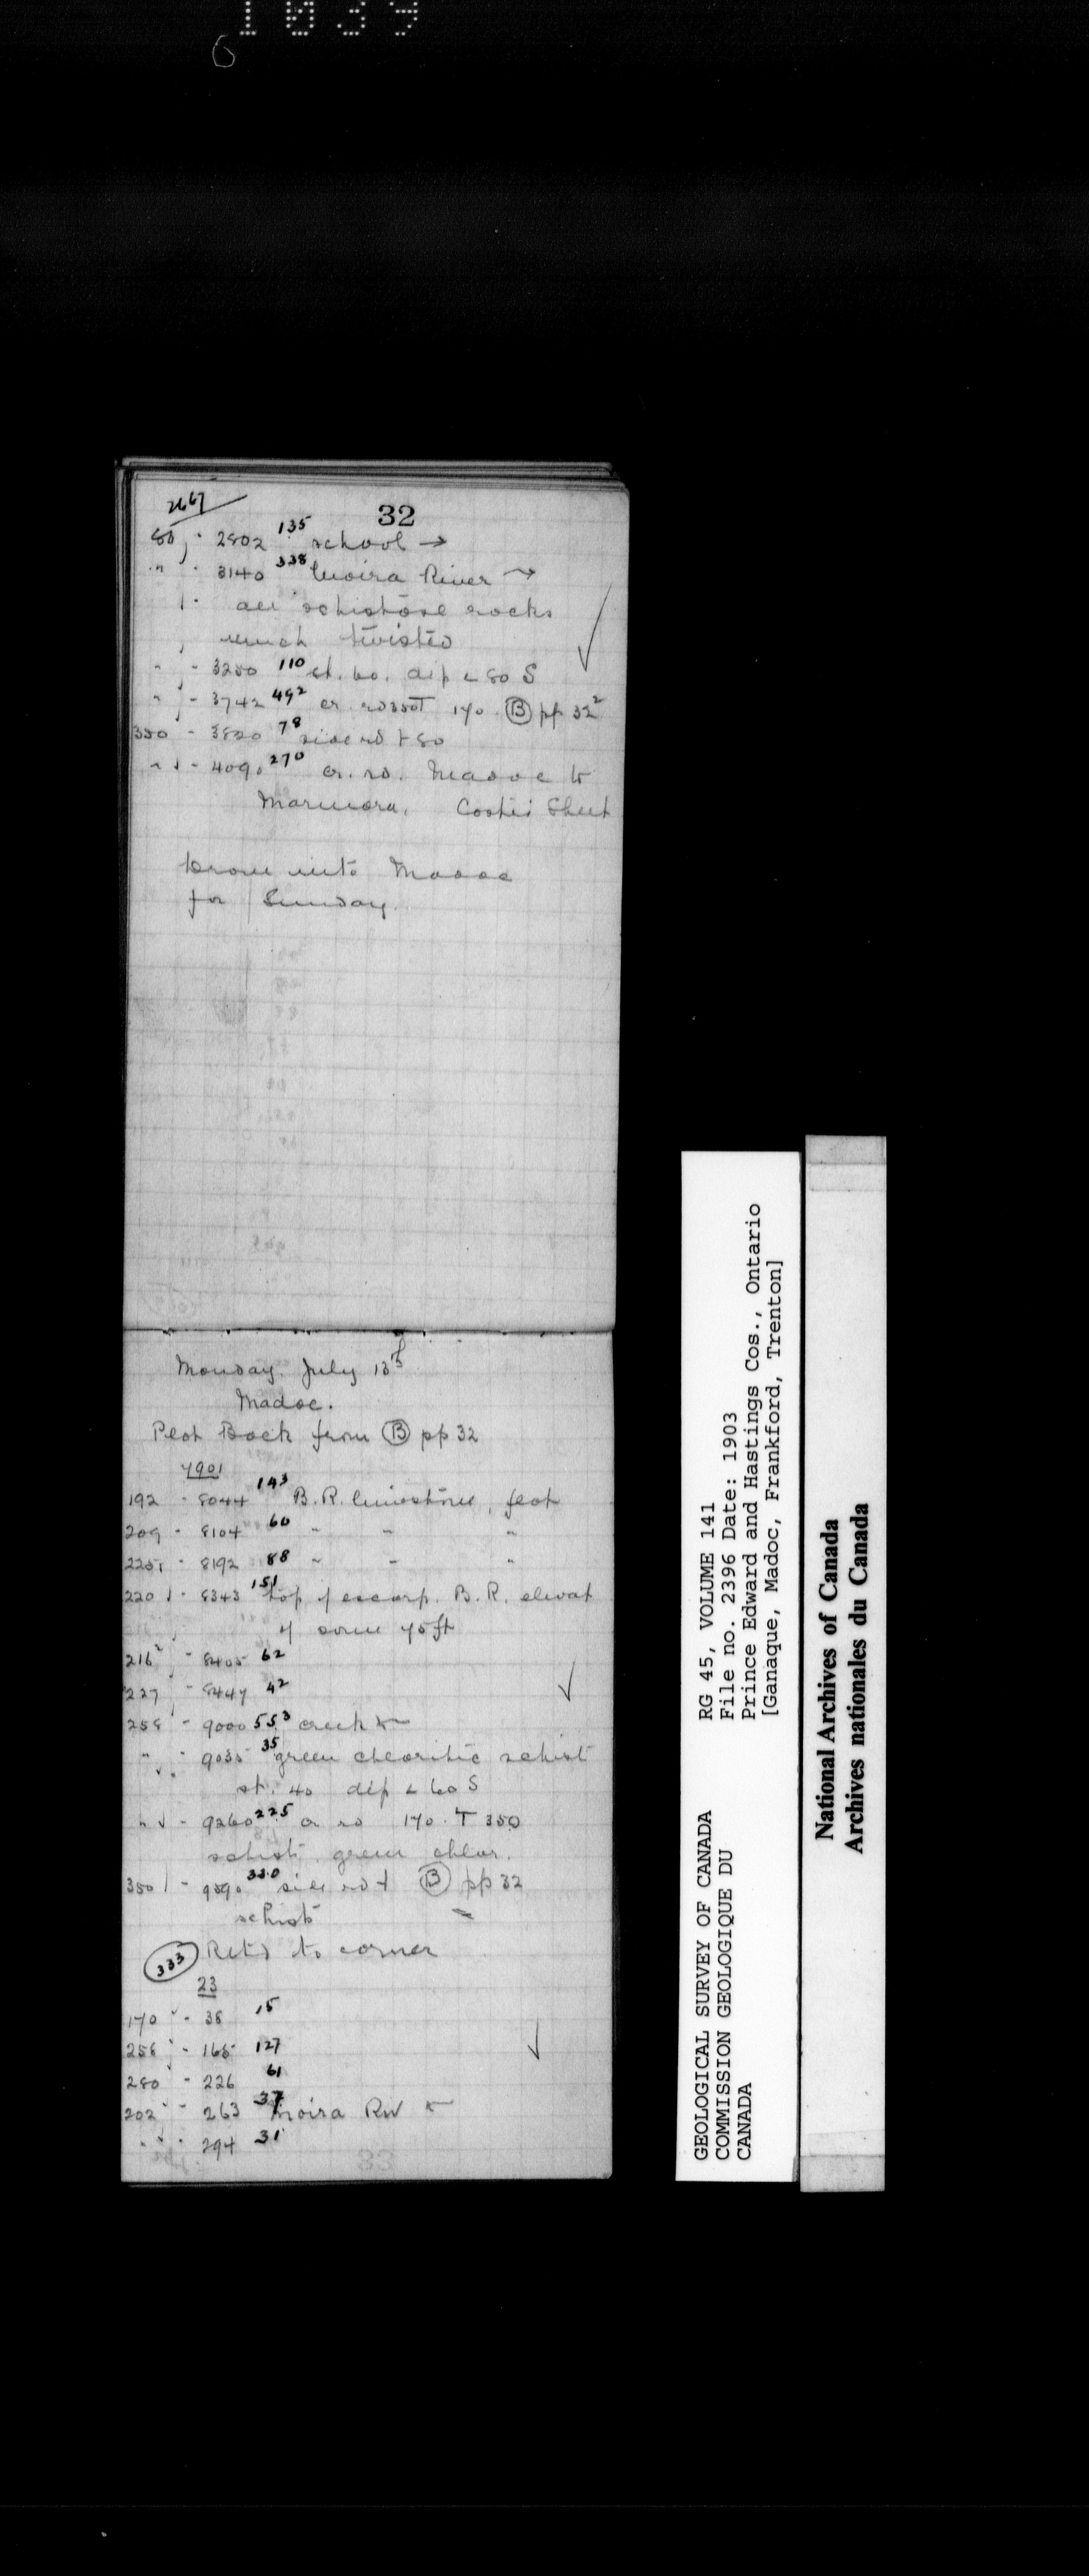 1039
6
2667
32
80 - 2802 135 school →
" - 3140 338 Moira River →
all schistose rocks
much twisted
" - 3250 110 st. 60. dip ∠ 80 S
" - 3742 492 cr. rd 350 T 170. (B) pp 32²
350 - 3820 78 side rd + 80
" - 4090 270 cr. rd. Madoc to
Marmora. Sheet
Drove into Madoc
for Sunday.
Monday. July 13th
Madoc.
Plot Back from (B) pp 32
7901
192 - 8044 143 B.R. limestone, flat
209 - 8104 60 " " "
225 - 8192 88 " " "
220 - 8343 151 top of escarp. B.R. elevat
of some 75 ft
216² - 8405 62
227 - 8447 42
258 - 9000 553 creek ←
" - 9035 35 green chloritic schist
st. 40 dip ∠ 60 S
" - 9260 225 cr rd 170. T 350
schist green chlor.
350 - 9590 330 side rd + (B) pp 32
schist
333 Retd to corner
23
170 - 38 15
258 - 165 127
280 - 226 61
202 - 263 37 Moira Riv ←
" - 294 31
33
GEOLOGICAL SURVEY OF CANADA
COMMISSION GEOLOGIQUE DU
CANADA
RG 45, VOLUME 141
File no. 2396 Date: 1903
Prince Edward and Hastings Cos., Ontario
[Ganaque, Madoc, Frankford, Trenton]
National Archives of Canada
Archives nationales du Canada